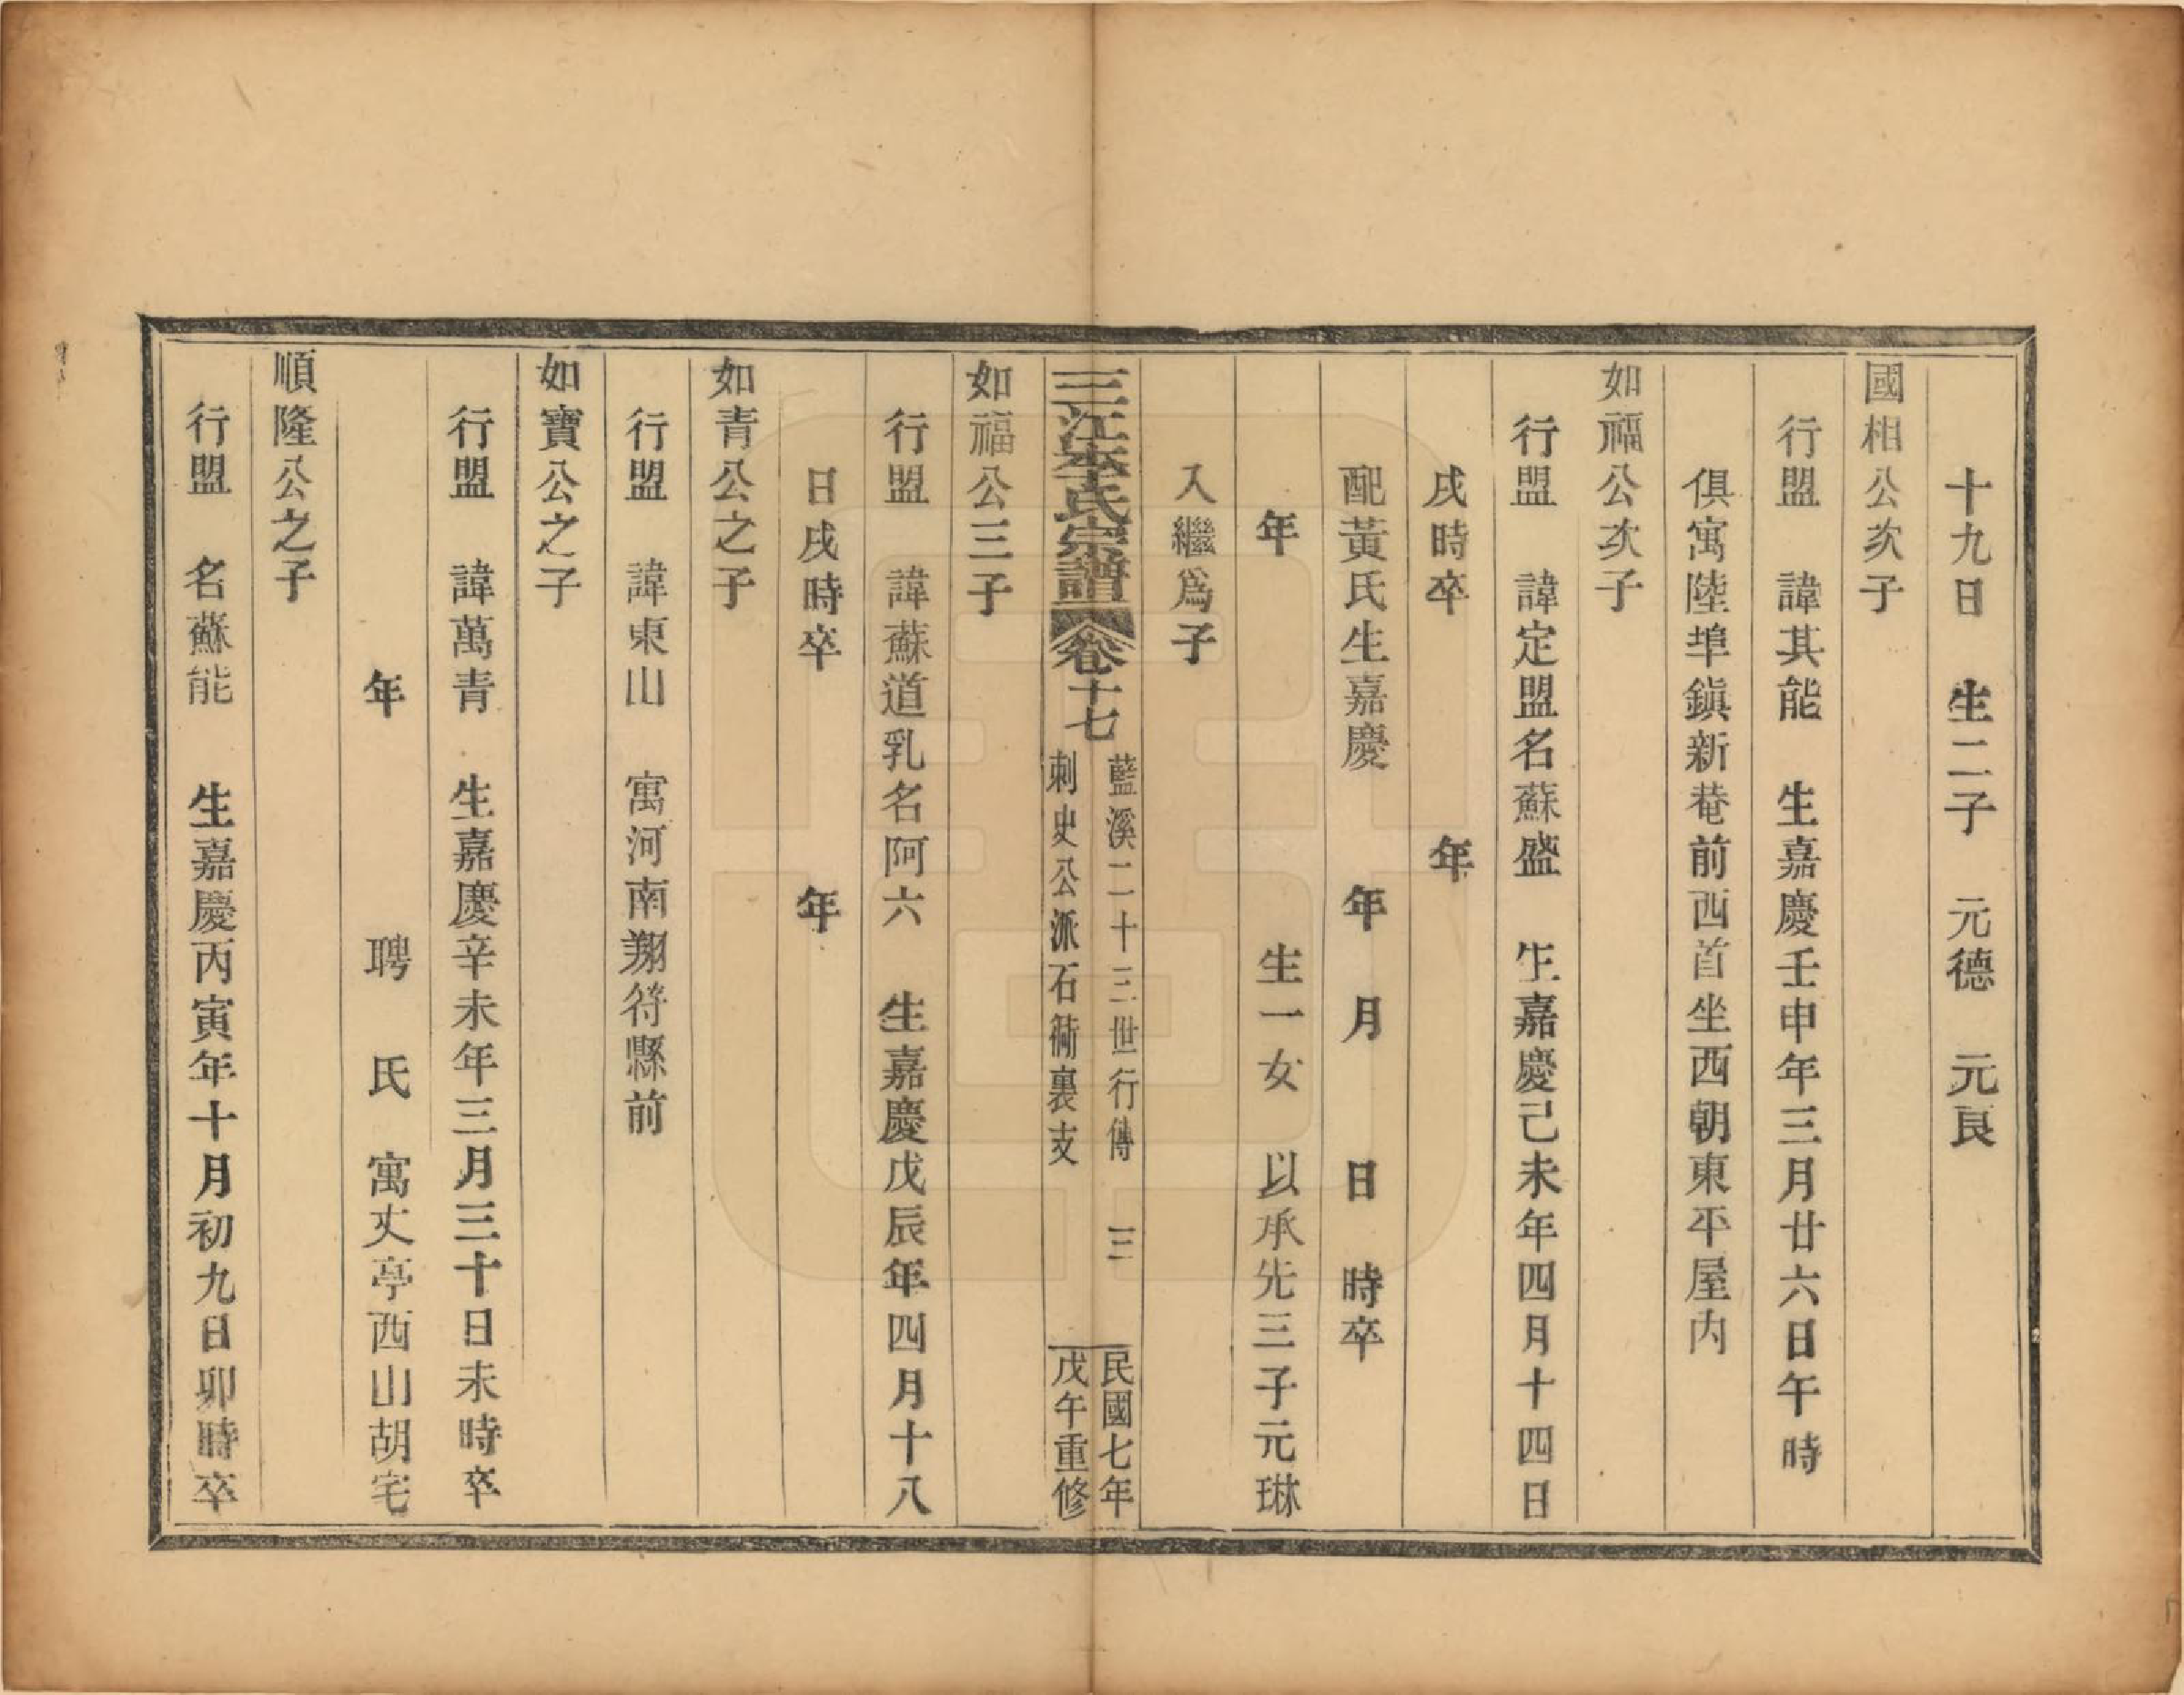 十九日　生二子　元德　元良
國相公次子
行盟　諱其能　生嘉慶壬申年三月廿六日午時
俱寓陸埠鎭新菴前西首坐西朝東平屋内
如福公次子
行盟　諱定盟名蘇盛　生嘉慶己未年四月十四日
戌時卒　年
配黃氏生嘉慶　年　月　日　時卒
年　生一女　以承先三子元琳
入繼爲子
三江李氏宗譜　卷十七
藍溪二十三世行傳　三
刺史公派石衕裏支
民國七年
戊午重修
如福公三子
行盟　諱蘇道乳名阿六　生嘉慶戊辰年四月十八
日戌時卒　年
如青公之子
行盟　諱東山　寓河南翔符縣前
如寶公之子
行盟　諱萬青　生嘉慶辛未年三月三十日未時卒
年　聘　氏　寓丈亭西山胡宅
順隆公之子
行盟　名蘇能　生嘉慶丙寅年十月初九日卯時卒